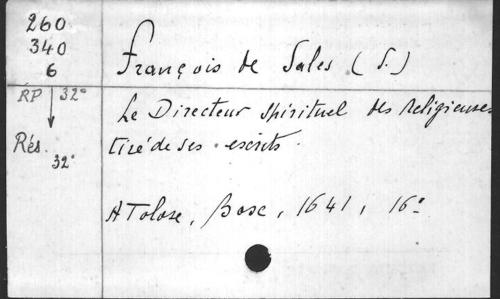 260
340
6
François de Sales (S.)
RP 32°
Le Directeur spirituel des religieuses
Rés.
32°
tiré de ses escrits.
A Tolose, Bosc, 1641, 16°